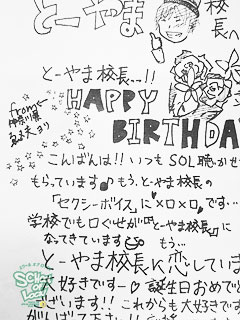 とーやま校長へ
とーやま校長…!!
from
神奈川県
HAPPY
BIRTHDAY
こんばんは!!いつもSOL聴かせて
もらっています♪もう、とーやま校長の
「セクシーボイス」に×ロ×ロ♡です…
学校でも口ぐせが「とーやま校長」に
なってきています もう…
とーやま校長に恋していま
大好きですー♡誕生日おめでと
ございます!!これからも大好きです
がんばって下さい!!
SCHOOL
OF LOCK!